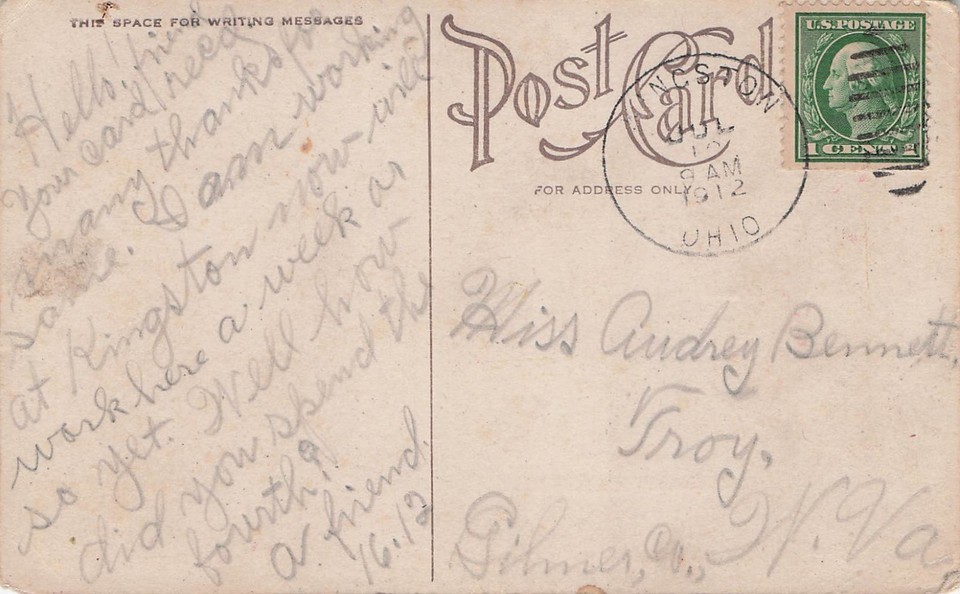 THIS SPACE FOR WRITING MESSAGES
Hello, friend
Your card rec'd
many thanks for
same. I am working
at Kingston now will
work here a week or
so yet. Well how
did you spend the
fourth?
a friend
16.12
Post Card
FOR ADDRESS ONLY
NGSTON
JUL
9 AM
1912
OHIO
U.S. POSTAGE
1 CENT 1
Miss Audrey Bennett,
Troy,
Gilmer, Co., W. Va